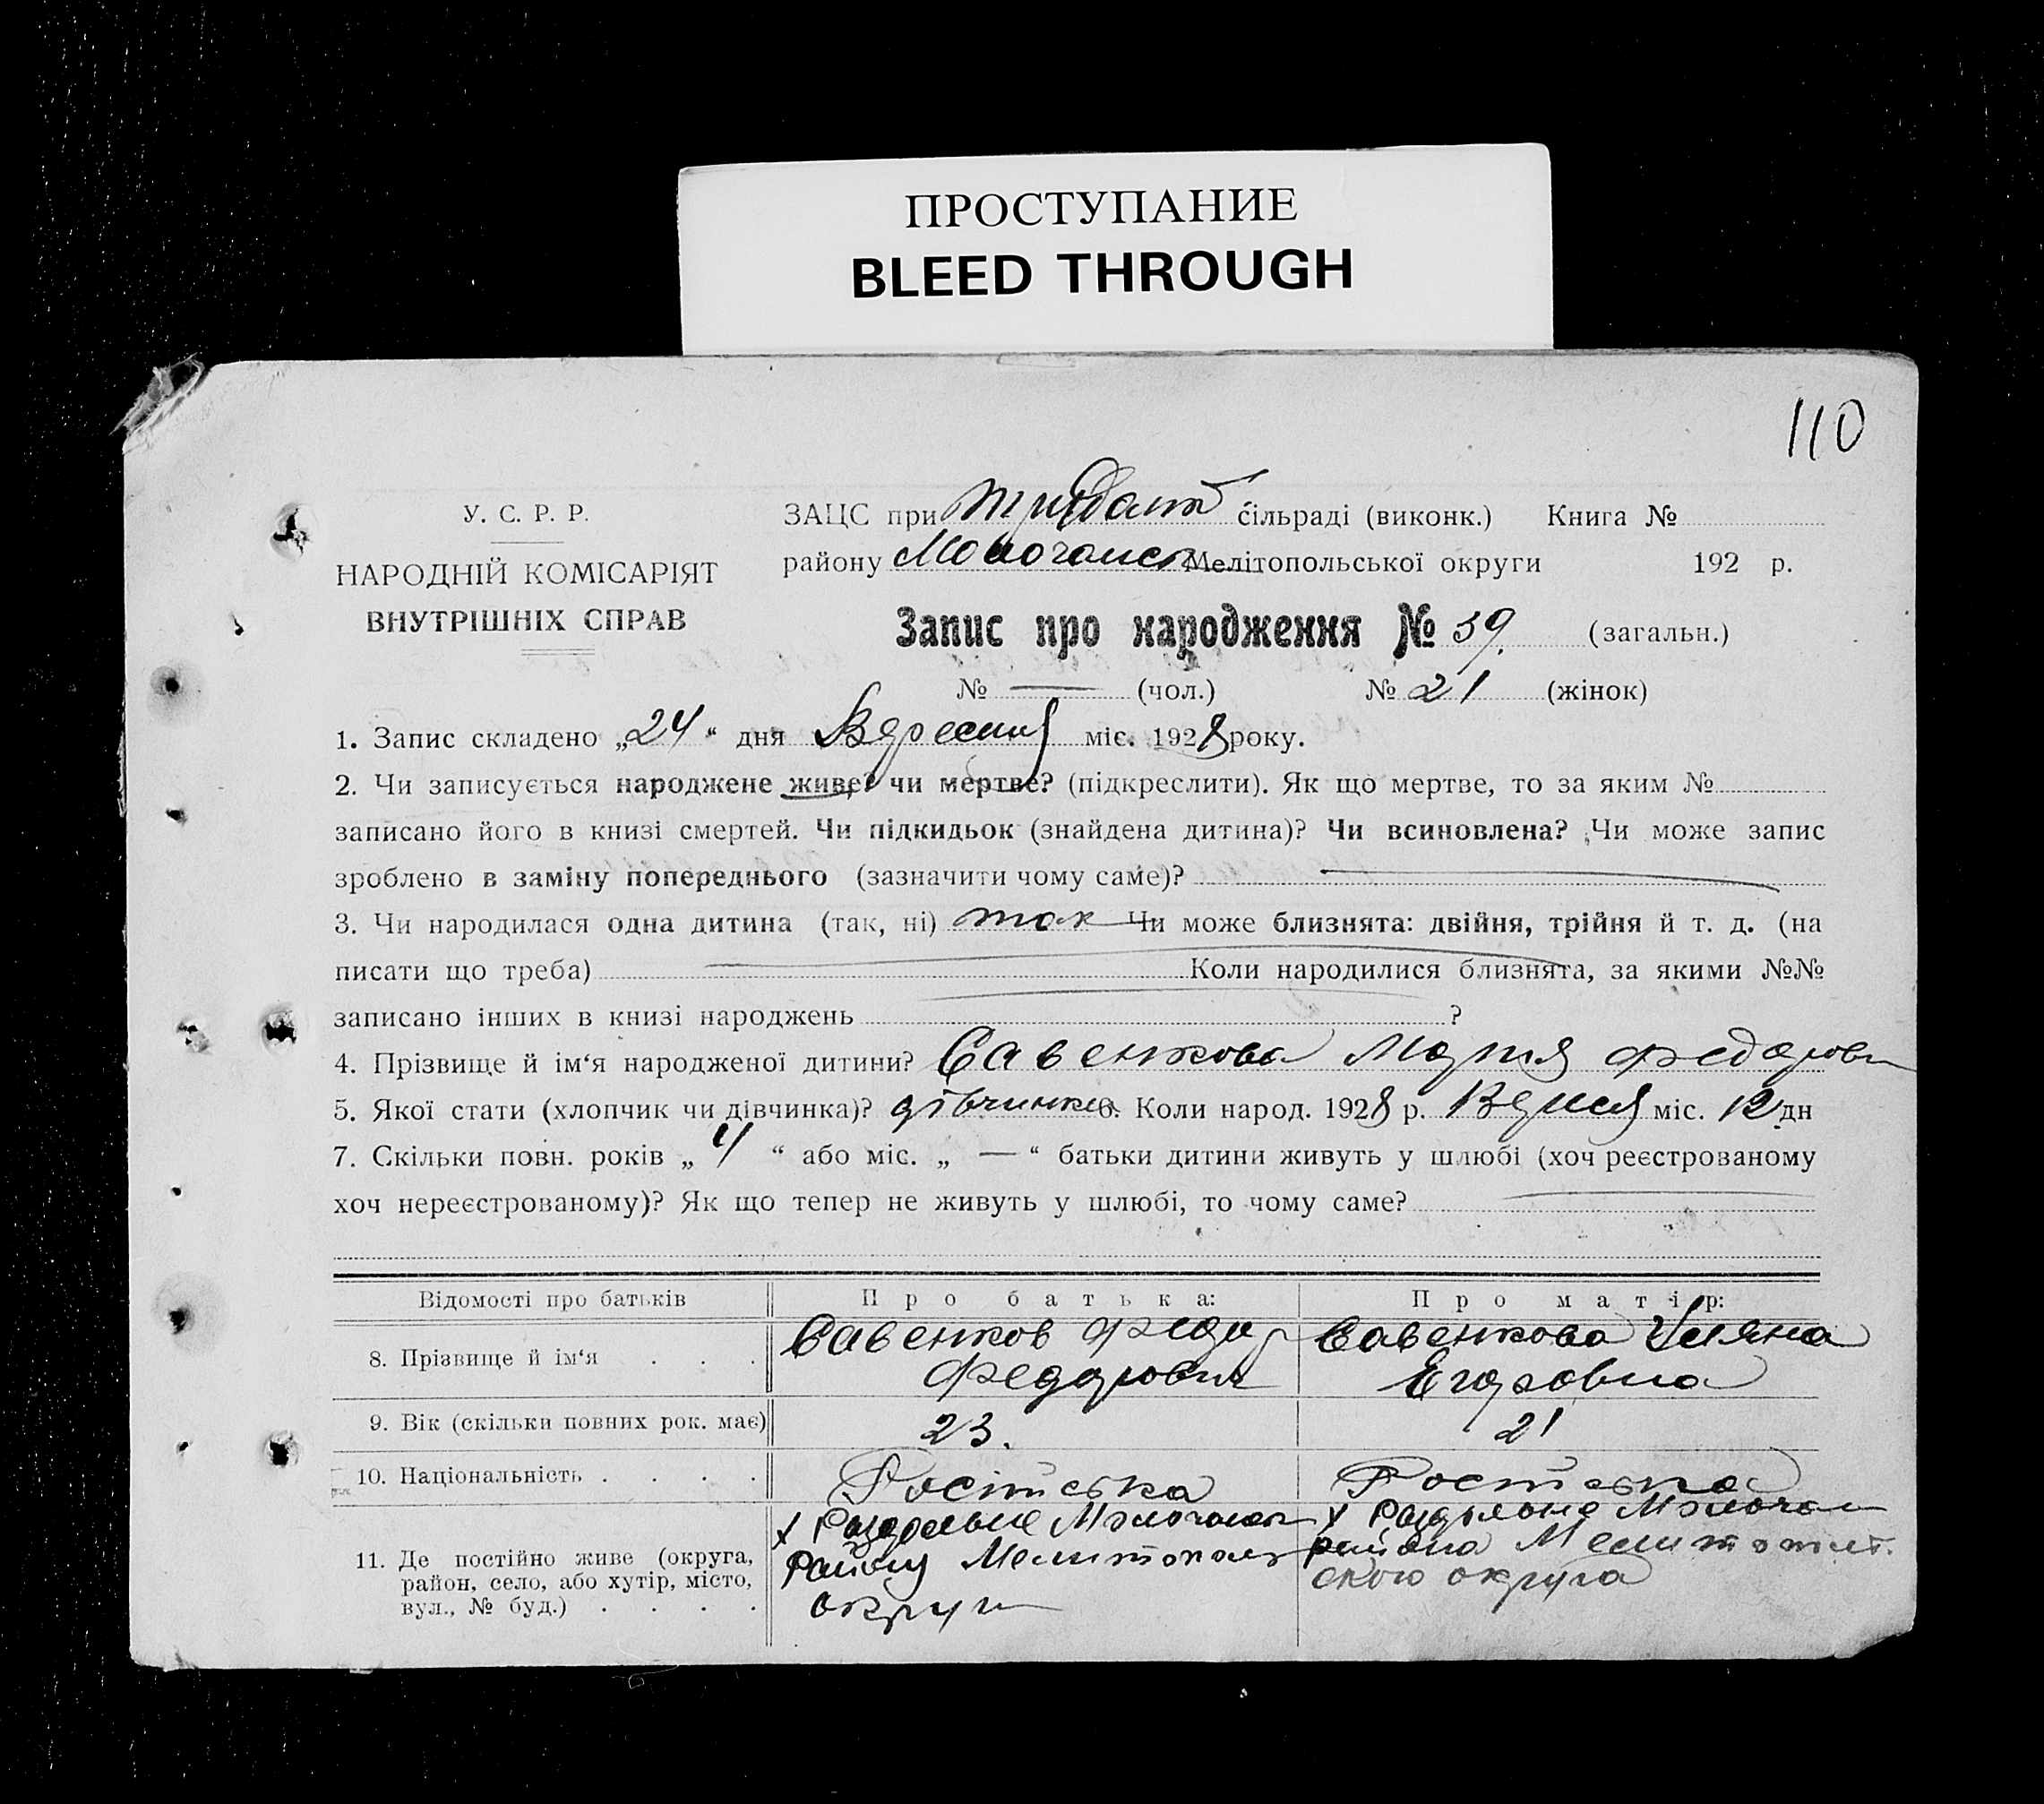 ПРОСТУПАНИЕ
BLEED THROUGH
110
У. С. Р. Р.
НАРОДНІЙ КОМІСАРІЯТ
ВНУТРІШНІХ СПРАВ
ЗАЦС при сільраді (виконк.) Книга №
району Молочанськ Мелітопольської округи 192 р.
Запис про народження № 39. (загальн.)
№ — (чол.) № 21 (жінок)
1. Запис складено „24“ дня Вересня міс. 1928 року.
2. Чи записується народжене живе? чи мертве? (підкреслити). Як що мертве, то за яким №
записано його в книзі смертей. Чи підкидьок (знайдена дитина)? Чи всиновлена? Чи може запис
зроблено в заміну попереднього (зазначити чому саме)?
3. Чи народилася одна дитина (так, ні) так Чи може близнята: двійня, трійня й т. д. (на
писати що треба) Коли народилися близнята, за якими №№
записано інших в книзі народжень ?
4. Прізвище й ім‘я народженої дитини? Савенкова Федоровн
5. Якої стати (хлопчик чи дівчинка)? дівчинка 6. Коли народ. 1928 р. міс. 12 дн
7. Скільки повн. років „ 4 “ або міс. „ — “ батьки дитини живуть у шлюбі (хоч реєстрованому
хоч нереєстрованому)? Як що тепер не живуть у шлюбі, то чому саме?
Відомості про батьків Про батька: Про матір:
8. Прізвище й ім‘я . . . Савенков Федор Савенкова Уляна
Федорович Егоровна
9. Вік (скільки повних рок. має) 23. 21
10. Національність . . . . Російська Російська
11. Де постійно живе (округа,
район, село, або хутір, місто,
вул., № буд.) . . . .
х Роздольне Молочанск
Району Мелитополь
округи
х Роздольне Молочан
района Мелитополь
ского округа